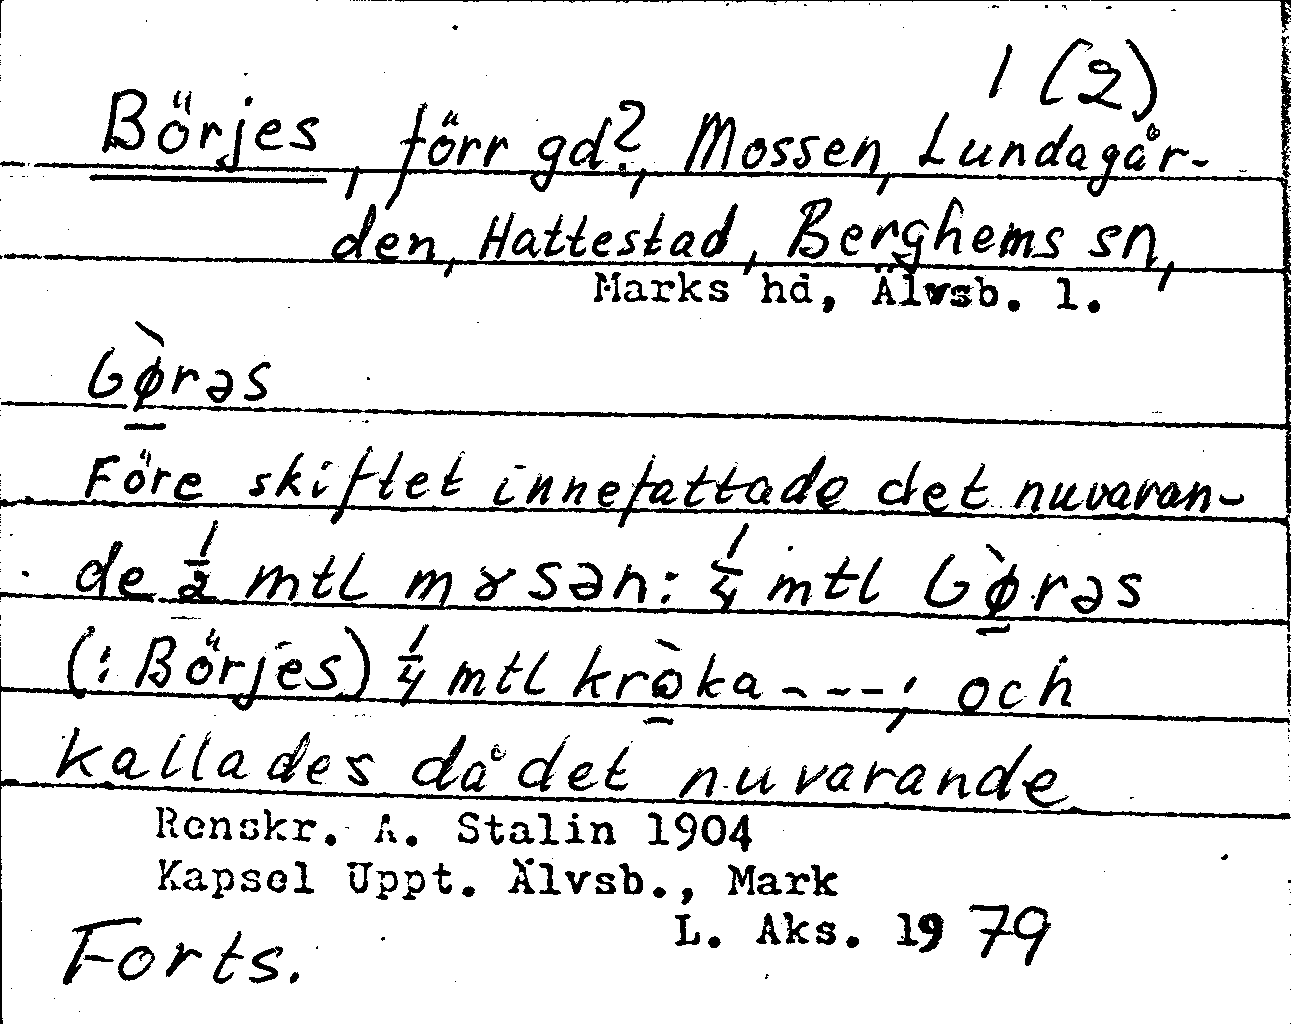 1 (2)
Börjes, förr gd?, Mossen, Lundagår-
den, Hattestad, Berghems sn,
Marks hd, Älvsb. l.
bø̀rəs
Före skiftet innefattade det nuvaran-
de 1/2 mtl mɤsən: 1/4 mtl bø̀rəs
(: Börjes) 1/4 mtl kròka - - - -; och
kallades då det nuvarande
Renskr. A. Stalin 1904
Kapsel Uppt. Älvsb., Mark
L. Aks. 1979
Forts.